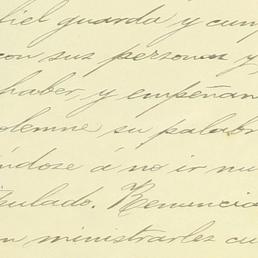 fiel guarda y cum
con sus personas y
haber, y empeñan
olemne su palabr
éndose á no ir nu
tulado. Renuncia
n ministrarles cu